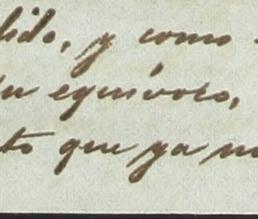 lido, y como
su equívoco,
to que ya no